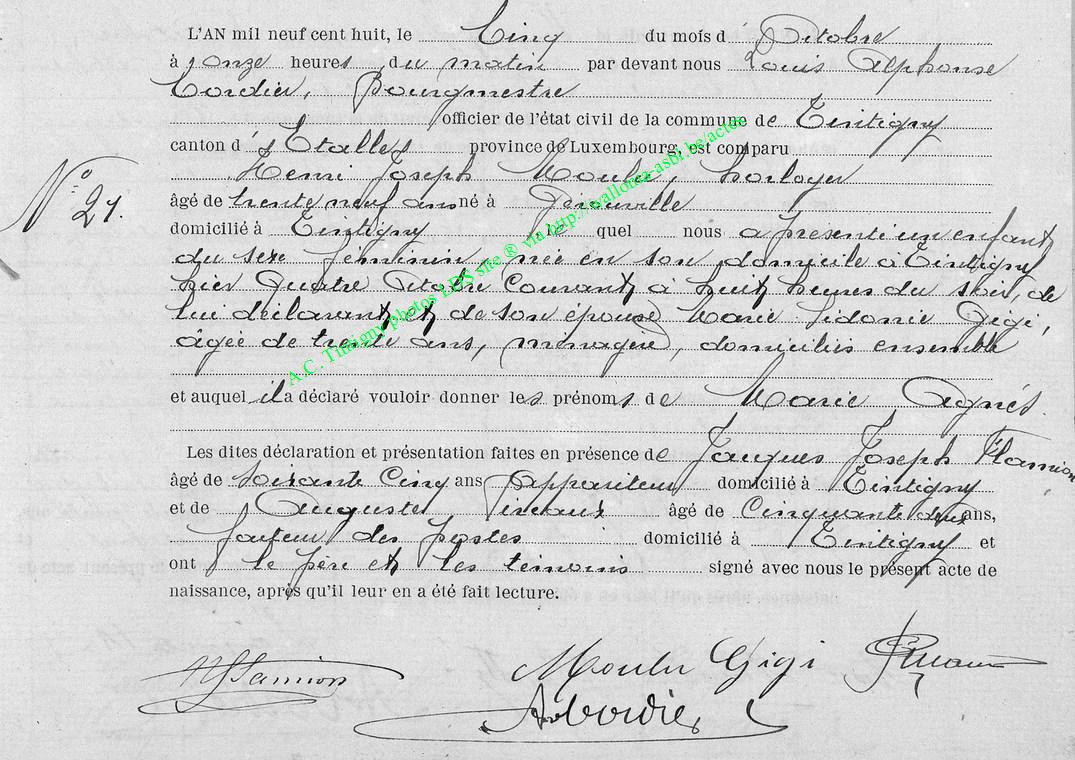 L'AN mil neuf cent huit, le Cinq du mois d'Octobre
à onze heures du matin par devant nous Louis Alphonse
Cordier, Bourgmestre
officier de l'état civil de la commune de Tintigny
canton d'Etalle, province de Luxembourg, est comparu
Henri Joseph Moulu, horloger
âgé de trente neuf ans né à
domicilié à Tintigny le quel nous a présenté un enfant
du sexe féminin, née en son domicile à Tintigny
hier quatre Octobre Courant, à huit heures du soir, de
lui déclarant et de son épouse Marie Sidonie Gigi,
âgée de trente ans, ménagère, domiciliés ensemble
et auquel il a déclaré vouloir donner les prénoms de Marie Agnès.
N° 27.
Les dites déclaration et présentation faites en présence de Jacques Joseph Flamion
âgé de soixante Cinq ans appariteur domicilié à Tintigny
et de Auguste âgé de Cinquante deux ans,
facteur des postes domicilié à Tintigny et
ont le père et les témoins signé avec nous le présent acte de
naissance, après qu'il leur en a été fait lecture.
JJFlamion Moulu Gigi
A Cordier
A.C. Tintigny photos LDS site ® via http://wallonia-asbl.be/actes